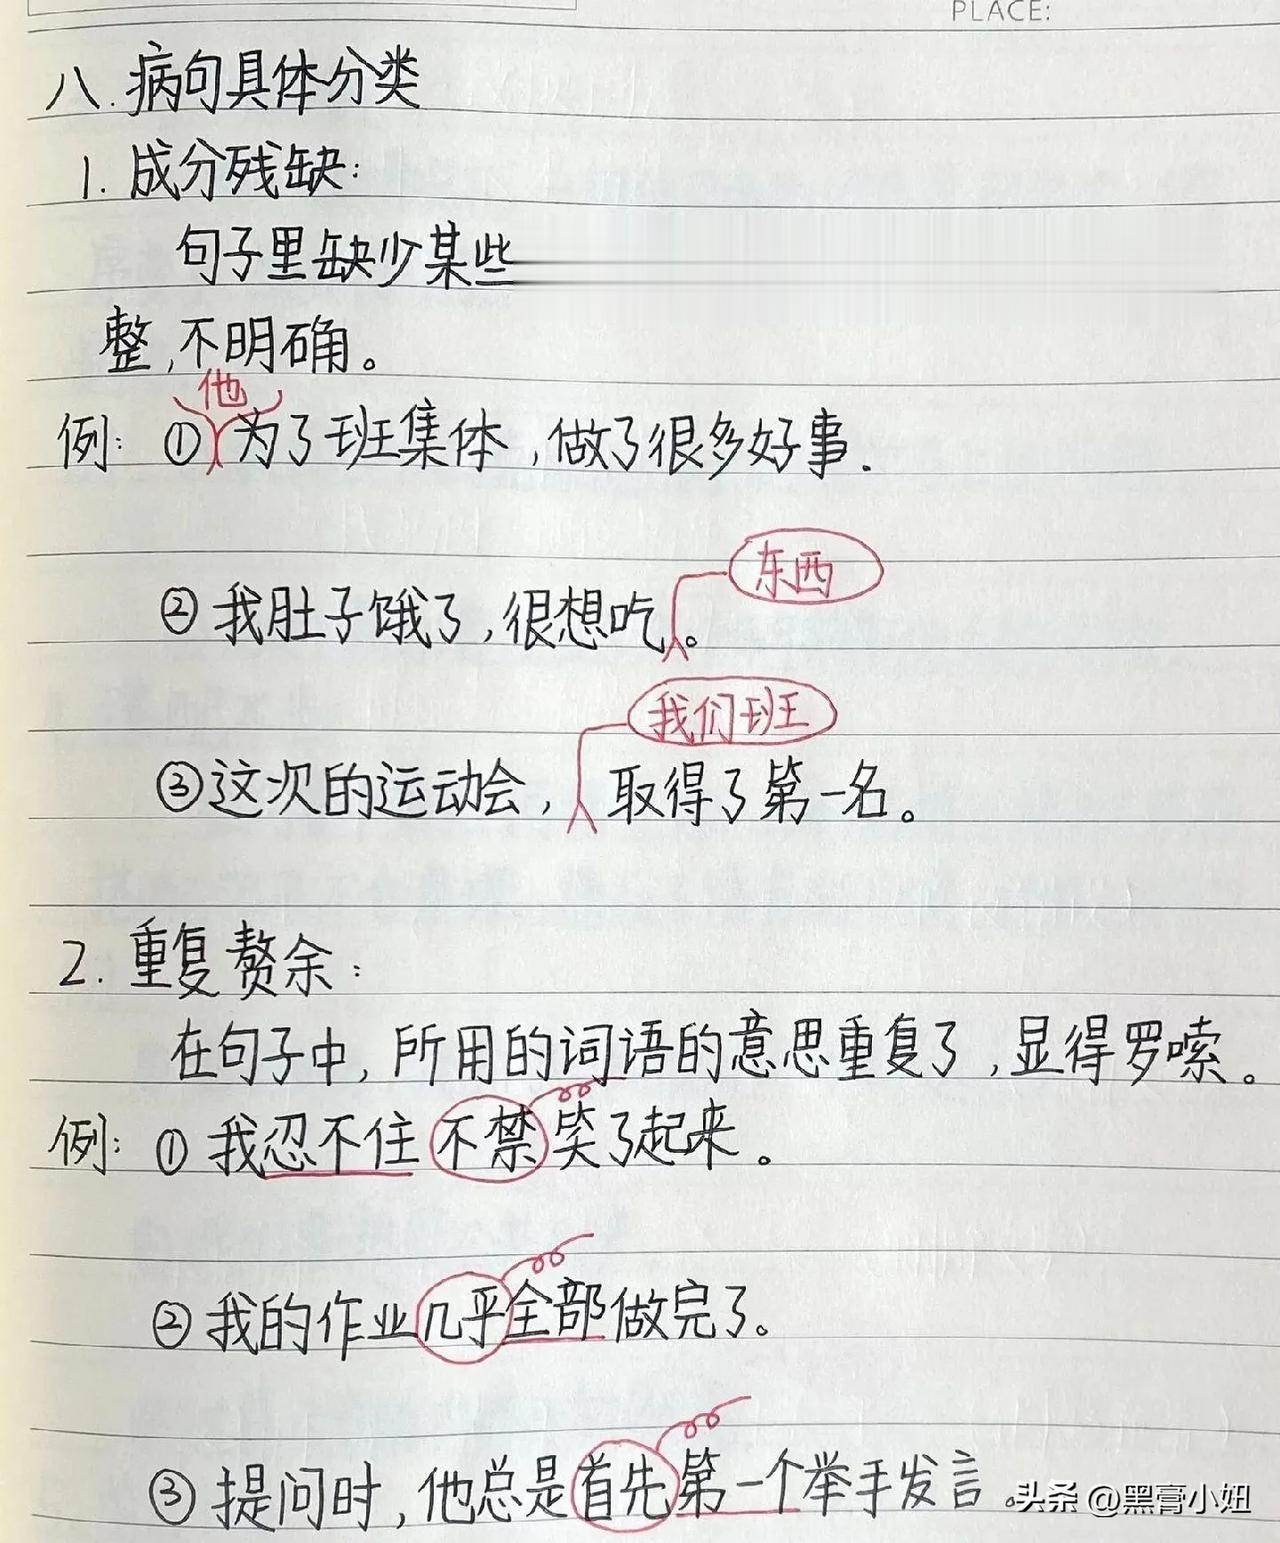 PLACE:
八.病句具体分类
1.成分残缺:
句子里缺少某些
整,不明确。
他
例:①为了班集体,做了很多好事.
东西
②我肚子饿了,很想吃。
我们班
③这次的运动会,取得了第一名。
2.重复赘余:
在句子中,所用的词语的意思重复了,显得罗嗦。
例:①我忍不住不禁笑了起来。
②我的作业几乎全部做完了。
③提问时,他总是首先第一个举手发言。
头条 @黑膏小妞